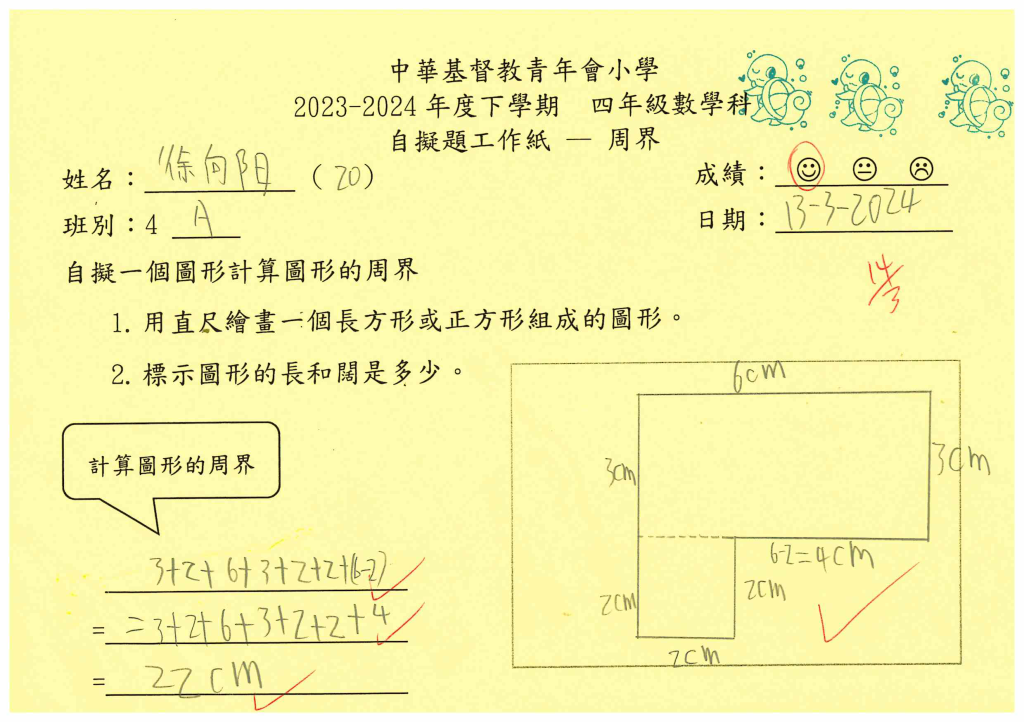 中華基督教青年會小學
2023-2024 年度下學期 四年級數學科
自擬題工作紙 — 周界
姓名：徐向阳 (20)
成績：
班別：4 A
日期：13-3-2024
自擬一個圖形計算圖形的周界
14/3
1. 用直尺繪畫一個長方形或正方形組成的圖形。
2. 標示圖形的長和闊是多少。
6cm
計算圖形的周界
3cm
3cm
6-2=4cm
3+2+6+3+2+2+(6-2)
2cm
2cm
= =3+2+6+3+2+2+4
2cm
= 22cm